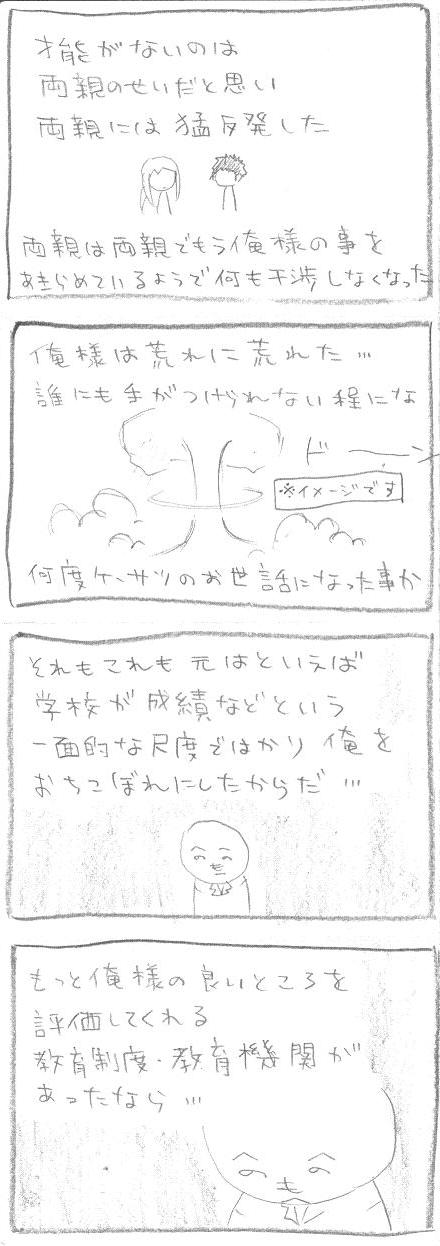 才能がないのは
両親のせいだと思い
両親には猛反発した
両親は両親でもう俺様の事を
あきらめているようで何も干渉しなくなった
俺様は荒れに荒れた…
誰にも手がつけられない程にな
ドーーン
※イメージです
何度ケーサツのお世話になった事か
それもこれも元はといえば
学校が成績などという
一面的な尺度ではかり俺を
おちこぼれにしたからだ…
もっと俺様の良いところを
評価してくれる
教育制度・教育機関が
あったなら…